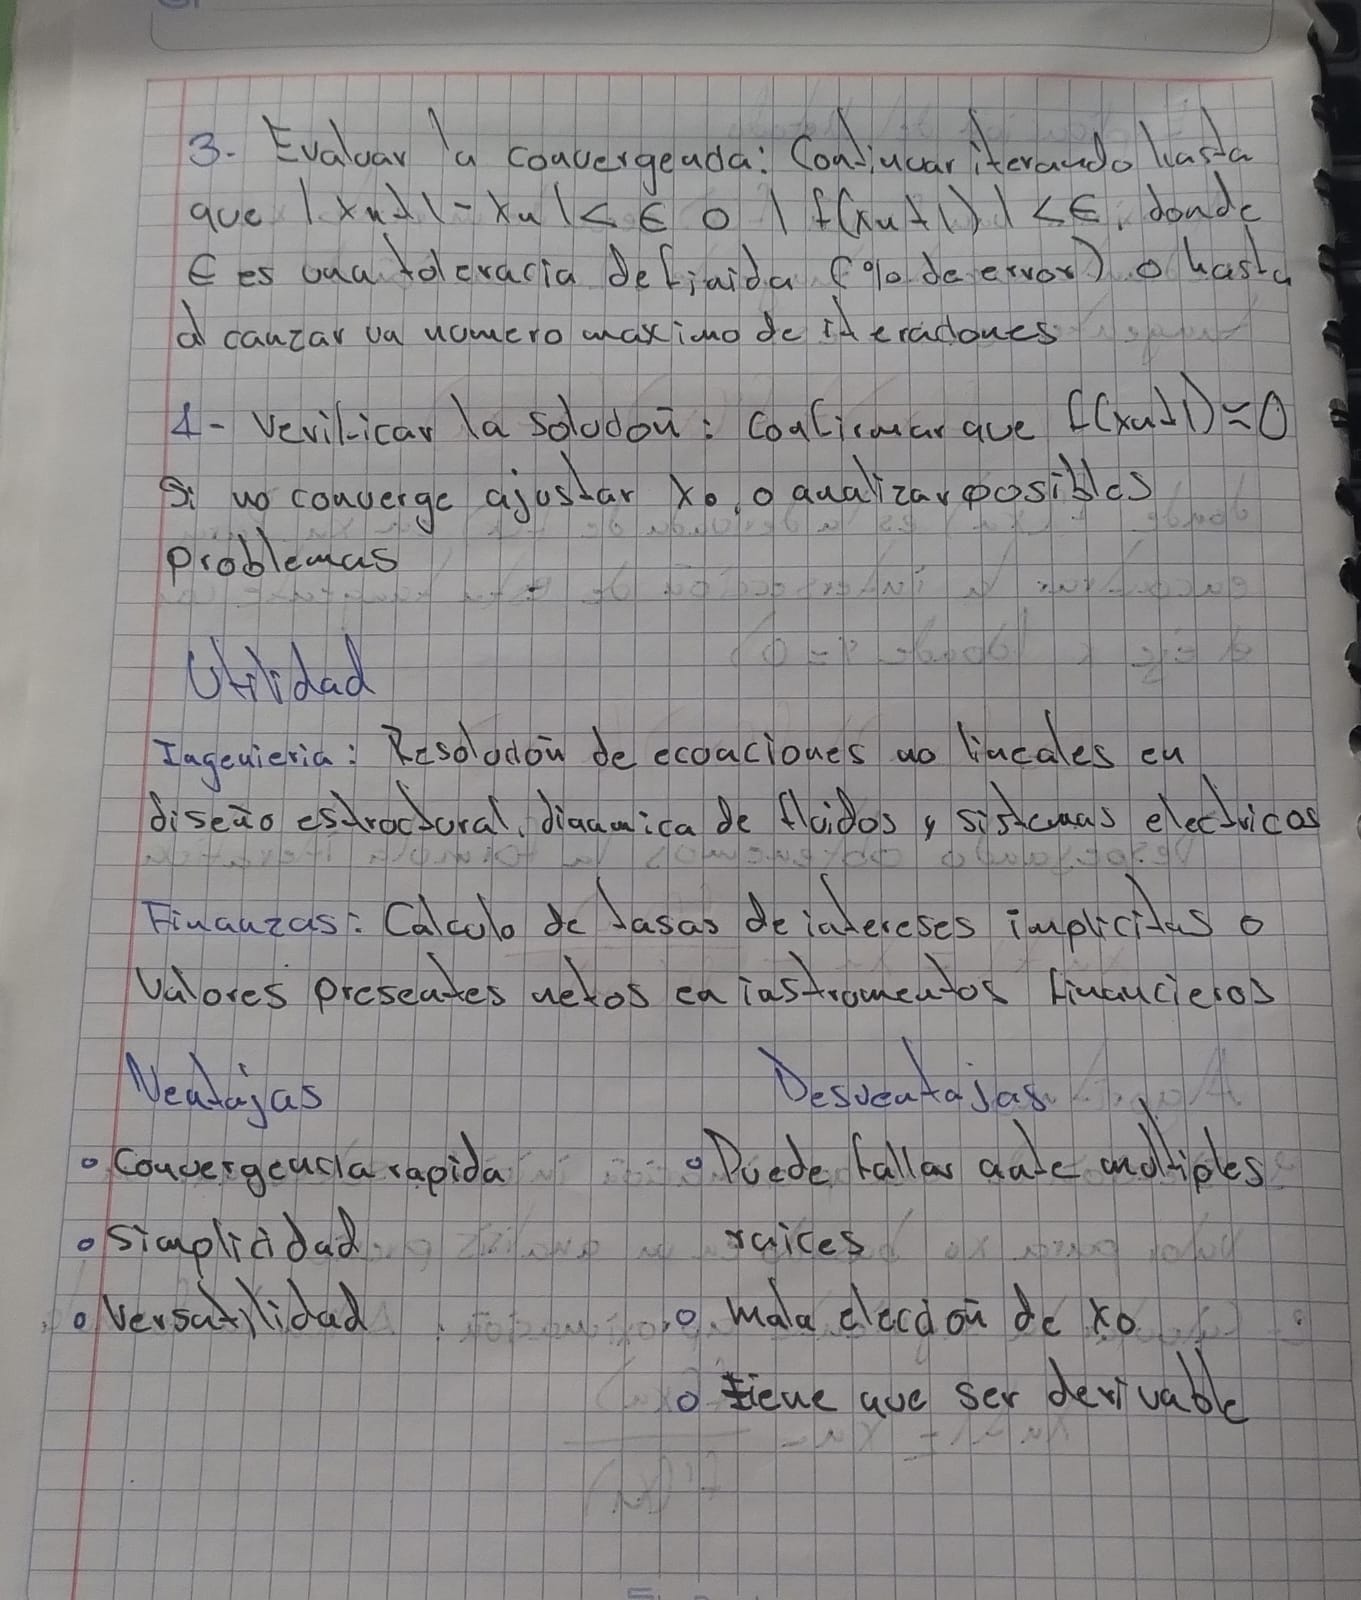 3. Evaluar la convergencia: Continuar iterando hasta
que |xn+1 - xn| < ∈ o |f(xn+1)| < ∈, donde
∈ es una toleracia definida (% de error) o hasta
alcanzar un numero maximo de iteraciones
4- Verificar la solución: Confirmar que f(xn+1) ≈ 0
Si no converge ajustar x0, o analizar posibles
problemas
Utilidad
Ingenieria: Resolución de ecuaciones no lineales en
diseño estructural, dinamica de fluidos y sistemas electricos
Finanzas: Calculo de tasas de intereses implicitas o
valores presentes netos en instrumentos financieros
Ventajas
° Convergencia rapida
° Simplicidad
° Versatilidad
Desventajas
° Puede fallar ante multiples
raices
° mala elección de x0
° tiene que ser derivable